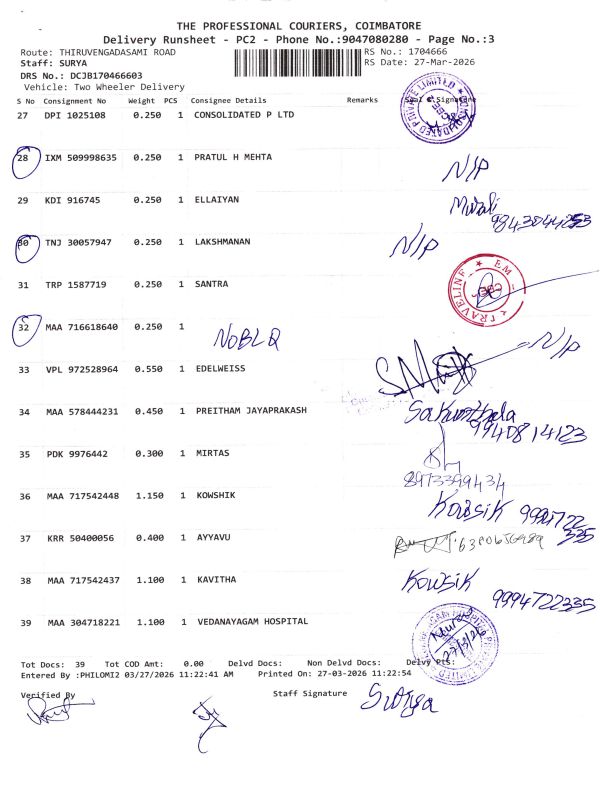 THE PROFESSIONAL COURIERS, COIMBATORE
Delivery Runsheet - PC2 - Phone No.:9047080280 - Page No.:3
Route: THIRUVENGADASAMI ROAD RS No.: 1704666
Staff: SURYA RS Date: 27-Mar-2026
DRS No.: DCJB170466603
Vehicle: Two Wheeler Delivery
S No Consignment No Weight PCS Consignee Details Remarks Seal & Signature
27 DPI 1025108 0.250 1 CONSOLIDATED P LTD
28 IXM 509998635 0.250 1 PRATUL H MEHTA N/P
29 KDI 916745 0.250 1 ELLAIYAN Murali
30 TNJ 30057947 0.250 1 LAKSHMANAN N/P
31 TRP 1587719 0.250 1 SANTRA TRAVELINE
32 MAA 716618640 0.250 1 N/P
33 VPL 972528964 0.550 1 EDELWEISS
34 MAA 578444231 0.450 1 PREITHAM JAYAPRAKASH 9940814123
35 PDK 9976442 0.300 1 MIRTAS
8973399434
36 MAA 717542448 1.150 1 KOWSHIK Kowsik 9994722
335
37 KRR 50400056 0.400 1 AYYAVU
38 MAA 717542437 1.100 1 KAVITHA Kowsik
9994722335
39 MAA 304718221 1.100 1 VEDANAYAGAM HOSPITAL 27/3/26
Tot Docs: 39 Tot COD Amt: 0.00 Delvd Docs: Non Delvd Docs: Delvy Pts:
Entered By :PHILOMI2 03/27/2026 11:22:41 AM Printed On: 27-03-2026 11:22:54
Verified By Staff Signature Surya